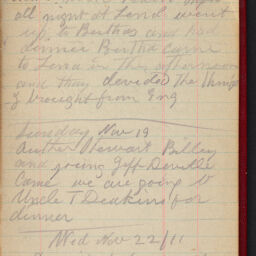 all night at Lena went
up to Berthas and had
dinner Bertha came
to Lena in the afternoon
and they devided the things
I brought from Eng
Sunday Nov 19
Stewart Billey
and young Jeff Deville
Came we are going to
Uncle T Deakins for
dinner
Wed Nov 22/11